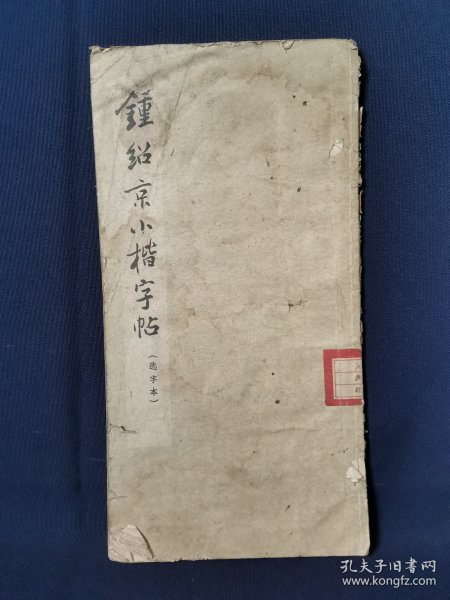 鍾紹京小楷字帖
（选字本）
孔夫子旧书网
www.kongfz.com